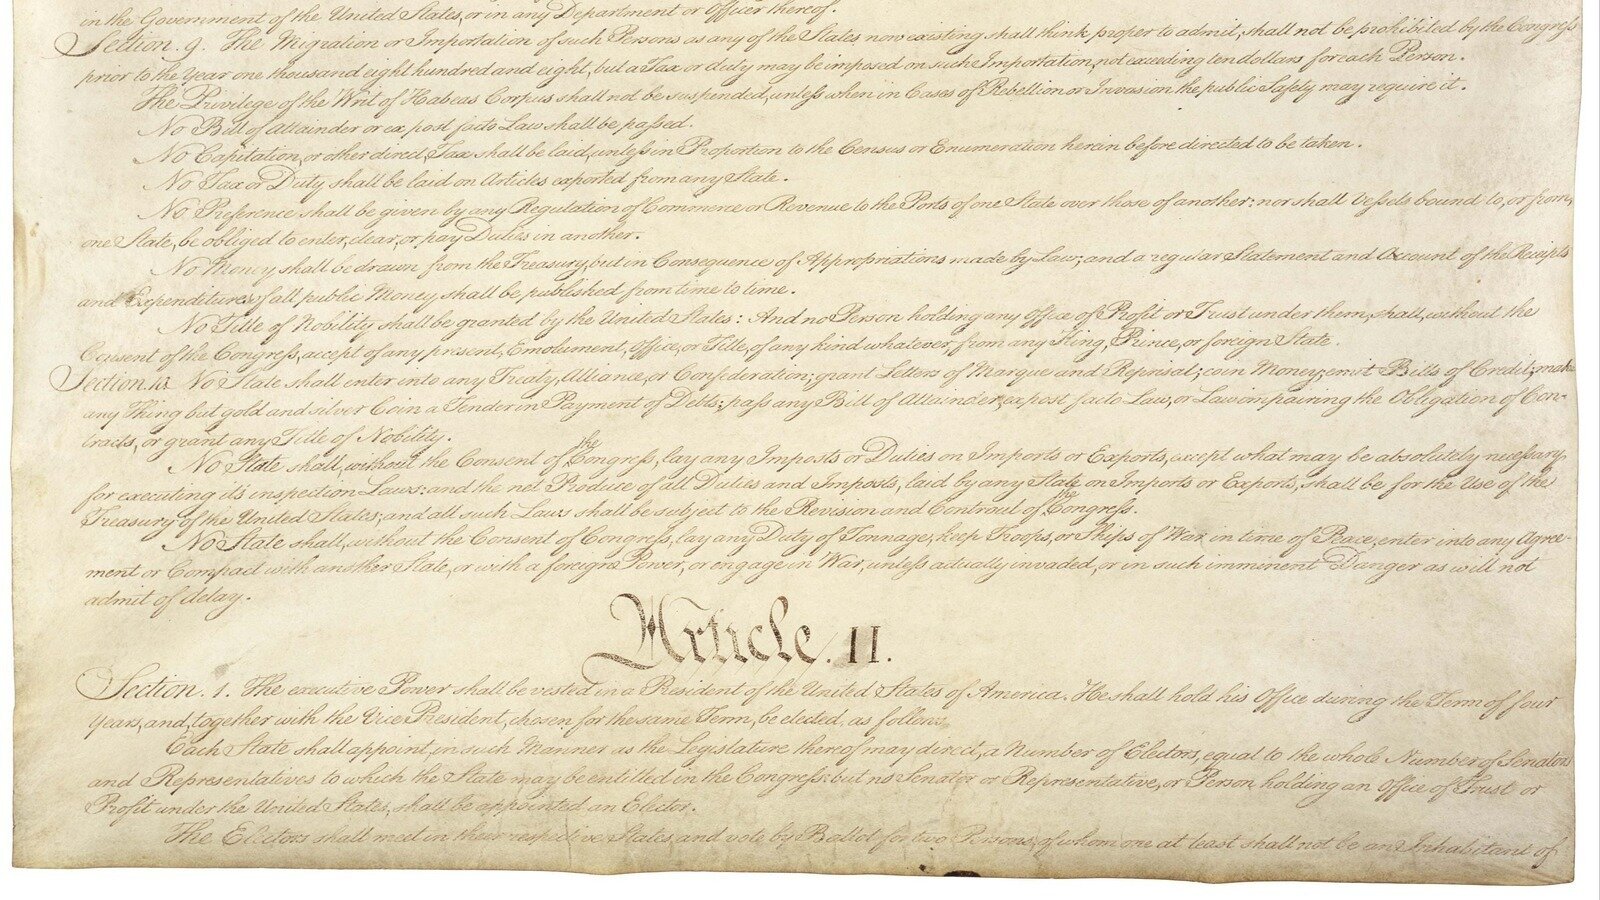 in the Government of the United States, or in any Department or Officer thereof.
Section. 9. The Migration or Importation of such Persons as any of the States now existing shall think proper to admit, shall not be prohibited by the Congress
prior to the Year one thousand eight hundred and eight, but a Tax or duty may be imposed on such Importation, not exceeding ten dollars for each Person.
The Privilege of the Writ of Habeas Corpus shall not be suspended, unless when in Cases of Rebellion or Invasion the public Safety may require it.
No Bill of Attainder or ex post facto Law shall be passed.
No Capitation, or other direct, Tax shall be laid, unless in Proportion to the Census or Enumeration herein before directed to be taken.
No Tax or Duty shall be laid on Articles exported from any State.
No Preference shall be given by any Regulation of Commerce or Revenue to the Ports of one State over those of another: nor shall Vessels bound to, or from,
one State, be obliged to enter, clear, or pay Duties in another.
No Money shall be drawn from the Treasury, but in Consequence of Appropriations made by Law; and a regular Statement and Account of the Receipts
and Expenditures of all public Money shall be published from time to time.
No Title of Nobility shall be granted by the United States: And no Person holding any Office of Profit or Trust under them, shall, without the
Consent of the Congress, accept of any present, Emolument, Office, or Title, of any kind whatever, from any King, Prince, or foreign State.
Section. 10. No State shall enter into any Treaty, Alliance, or Confederation; grant Letters of Marque and Reprisal; coin Money; emit Bills of Credit; make
any Thing but gold and silver Coin a Tender in Payment of Debts; pass any Bill of Attainder, ex post facto Law, or Law impairing the Obligation of Con-
tracts, or grant any Title of Nobility.
No State shall, without the Consent of the Congress, lay any Imposts or Duties on Imports or Exports, except what may be absolutely necessary
for executing it's inspection Laws: and the net Produce of all Duties and Imposts, laid by any State on Imports or Exports, shall be for the Use of the
Treasury of the United States; and all such Laws shall be subject to the Revision and Controul of the Congress.
No State shall, without the Consent of Congress, lay any Duty of Tonnage, keep Troops, or Ships of War in time of Peace, enter into any Agree-
ment or Compact with another State, or with a foreign Power, or engage in War, unless actually invaded, or in such imminent Danger as will not
admit of delay.
Article. II.
Section. 1. The executive Power shall be vested in a President of the United States of America. He shall hold his Office during the Term of four
Years, and, together with the Vice President, chosen for the same Term, be elected, as follows
Each State shall appoint, in such Manner as the Legislature thereof may direct, a Number of Electors, equal to the whole Number of Senators
and Representatives to which the State may be entitled in the Congress: but no Senator or Representative, or Person holding an Office of Trust or
Profit under the United States, shall be appointed an Elector.
The Electors shall meet in their respective States, and vote by Ballot for two Persons, of whom one at least shall not be an Inhabitant of